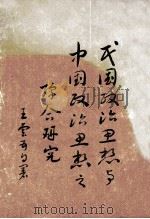 民国政治思想与
中国政治思想之
综合研究
王云五署